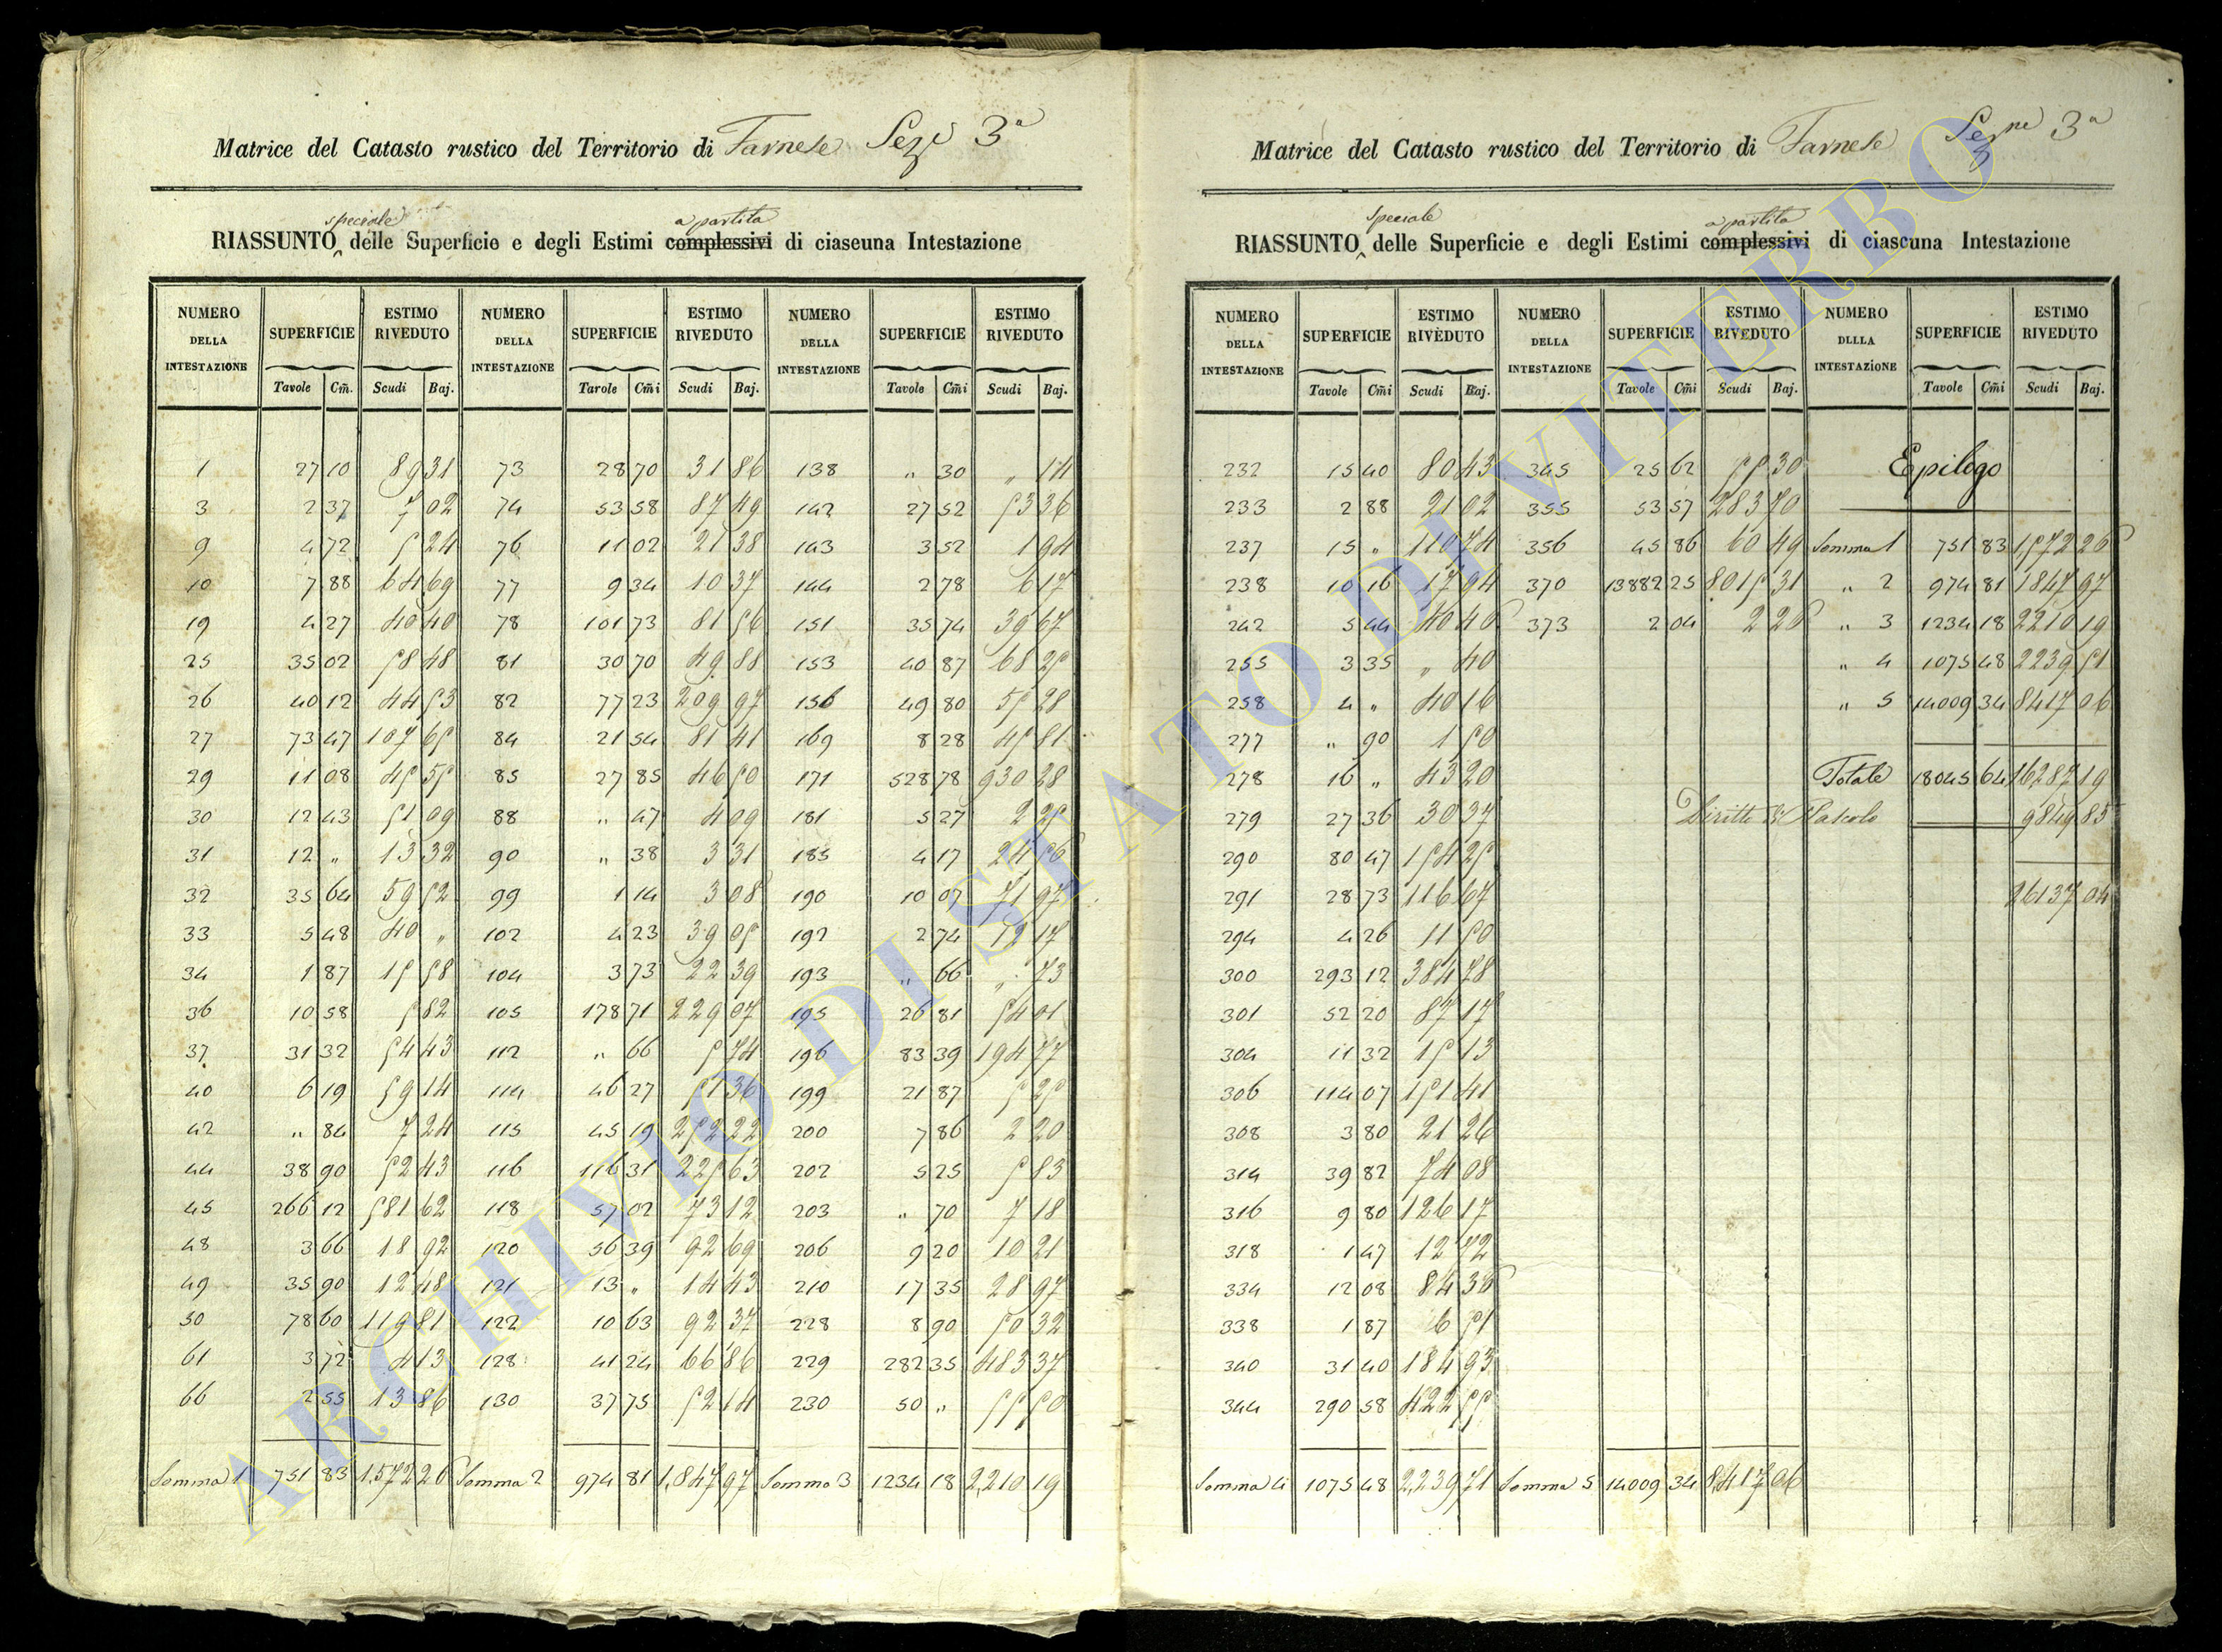 Matrice del Catasto rustico del Territorio di Farnese Sez.e 3a
speciale a partita
RIASSUNTO delle Superficie e degli Estimi complessivi di ciaseuna Intestazione
NUMERO DELLA INTESTAZIONE SUPERFICIE ESTIMO RIVEDUTO NUMERO DELLA INTESTAZIONE SUPERFICIE ESTIMO RIVEDUTO NUMERO DELLA INTESTAZIONE SUPERFICIE ESTIMO RIVEDUTO
Tavole Cm̃. Scudi Baj. Tarole Cm̃i Scudi Baj. Tavole Cm̃i Scudi Baj.
1 27 10 89 31 73 28 70 31 86 138 " 30 " 14
3 2 37 7 02 74 53 58 87 49 142 27 52 53 36
9 4 72 5 24 76 11 02 21 38 143 3 52 1 94
10 7 88 64 69 77 9 34 10 37 144 2 78 6 17
19 4 27 40 40 78 101 73 81 56 151 35 74 39 67
25 35 02 58 48 81 30 70 49 88 153 40 87 68 25
26 40 12 44 53 82 77 23 209 97 156 49 80 55 28
27 73 47 107 65 84 21 54 81 41 169 8 28 45 81
29 11 08 45 55 85 27 85 46 50 171 528 78 930 28
30 12 43 51 09 88 " 47 4 09 181 5 27 2 25
31 12 " 13 32 90 " 38 3 31 185 4 17 24 56
32 35 64 59 52 99 1 14 3 08 190 10 07 71 97
33 5 48 40 " 102 4 23 39 05 192 2 74 12 17
34 1 87 15 58 104 3 73 22 39 193 " 66 " 73
36 10 58 5 82 105 178 71 229 07 195 26 81 54 01
37 31 32 54 43 112 " 66 5 74 196 83 39 194 77
40 6 19 59 14 114 46 27 51 36 199 21 87 5 25
42 " 84 7 24 115 45 19 252 22 200 7 86 2 20
44 38 90 52 43 116 116 31 225 63 202 5 25 5 83
45 266 12 581 62 118 57 02 73 12 203 " 70 7 18
48 3 66 18 92 120 56 39 92 69 206 9 20 10 21
49 35 90 12 48 121 13 " 14 43 210 17 35 28 97
50 78 60 119 81 122 10 63 92 37 228 8 90 50 32
61 3 72 4 13 128 41 24 66 86 229 282 35 483 37
66 2 55 13 86 130 37 75 52 14 230 50 " 55 50
Somma 1 751 83 1,572 26 Somma 2 974 81 1,847 97 Somma 3 1234 18 2,210 19
Matrice del Catasto rustico del Territorio di Farnese Sezne 3a
speciale a partita
RIASSUNTO delle Superficie e degli Estimi complessivi di ciascuna Intestazione
NUMERO DELLA INTESTAZIONE SUPERFICIE ESTIMO RIVEDUTO NUMERO DELLA INTESTAZIONE SUPERFICIE ESTIMO RIVEDUTO NUMERO DLLLA INTESTAZIONE SUPERFICIE ESTIMO RIVEDUTO
Tavole Cm̃i Scudi Baj. Tavole Cm̃i Scudi Baj. Tavole Cm̃i Scudi Baj.
232 15 40 80 43 345 25 62 55 30 Epilogo
233 2 88 21 02 355 53 57 283 70
237 15 " 110 74 356 45 86 60 49 Somma 1 751 83 1572 26
238 10 16 17 94 370 13882 25 8015 31 " 2 974 81 1847 97
242 5 44 40 46 373 2 04 2 26 " 3 1234 18 2210 19
255 3 35 " 40 " 4 1075 48 2239 51
258 4 " 40 16 " 5 14009 34 8417 06
277 " 90 1 50
278 16 " 43 20 Totale 18045 64 16287 19
279 27 36 30 37 Diritto di Pascolo 9849 85
290 80 47 154 25
291 28 73 116 67 26137 04
294 4 26 11 50
300 293 12 384 78
301 52 20 87 17
304 11 32 15 13
306 114 07 151 41
308 3 80 21 26
314 39 82 74 08
316 9 80 126 17
318 1 47 12 72
334 12 08 84 36
338 1 87 6 51
340 31 40 184 93
344 290 58 422 55
Somma 4 1075 48 2,239 71 Somma 5 14009 34 8,417 06
ARCHIVIO DI STATO DI VITERBO